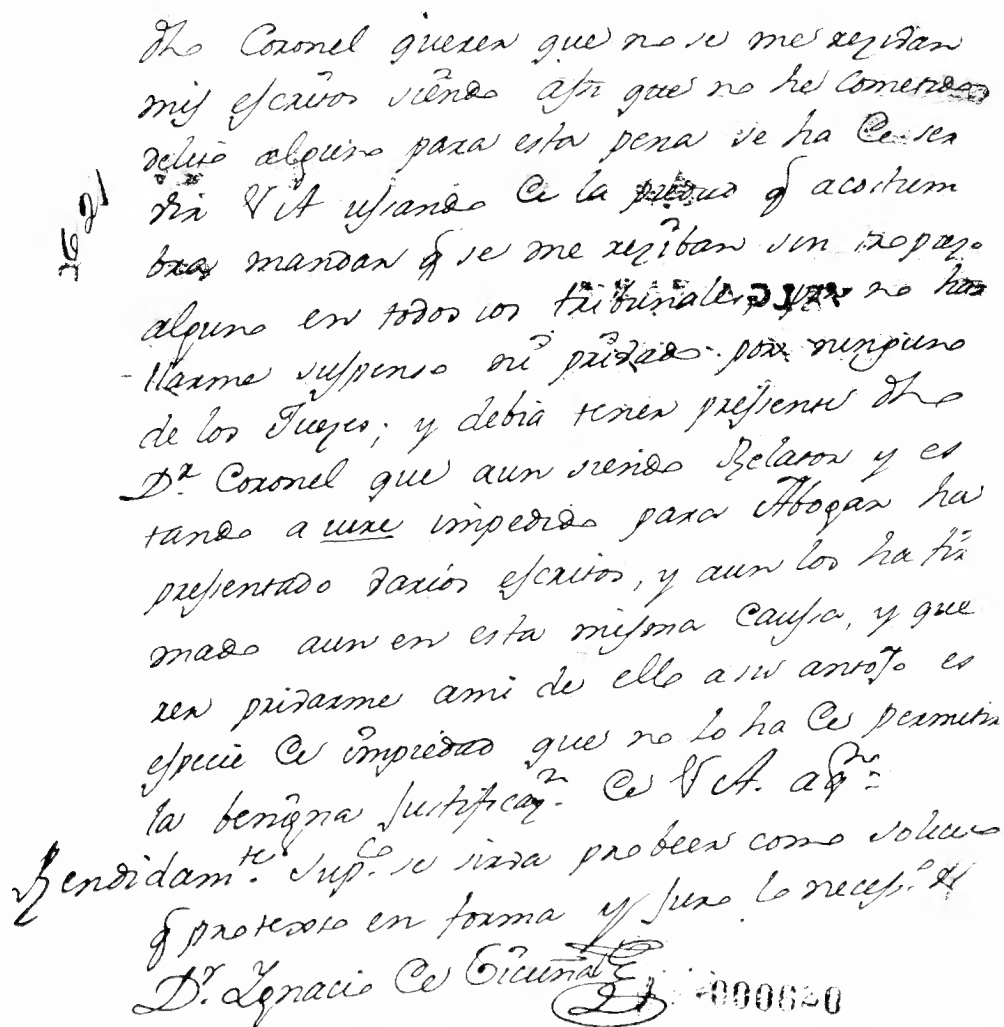 dho Coronel querer que no se me rezivan
mis escritos siendo assi que no he cometido
delito alguno para esta pena se ha de ser
vir V.A. usando de la piedad q̃ acostum
bra, mandar q̃ se me reziban sin reparo
alguno en todos los tribunales, por no ha
llarme suspenso ni privado por ninguno
de los Juezes; y debia tener pressente dho
Dr. Coronel que aun siendo Relator y es
tando a iure impedido para Abogar ha
pressentado varios escritos, y aun los ha fir
mado aun en esta misma Caussa, y que
rer privarme ami de ello a su antojo es
especie de impiedad que no lo ha de permitir
la benigna justificazn. de V.A. a qn.
Rendidamte. supco. se sirva probeer como
q̃ protexto en forma y juro lo necess.o &
Dr. Ignacio de
21
000620